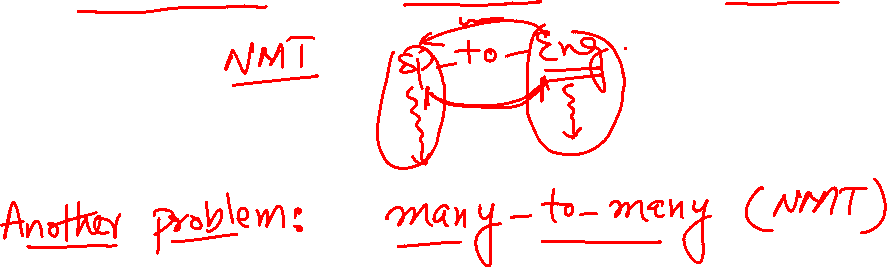 NMT Sp - to - Eng.
Another problem: many-to-many (NMT)